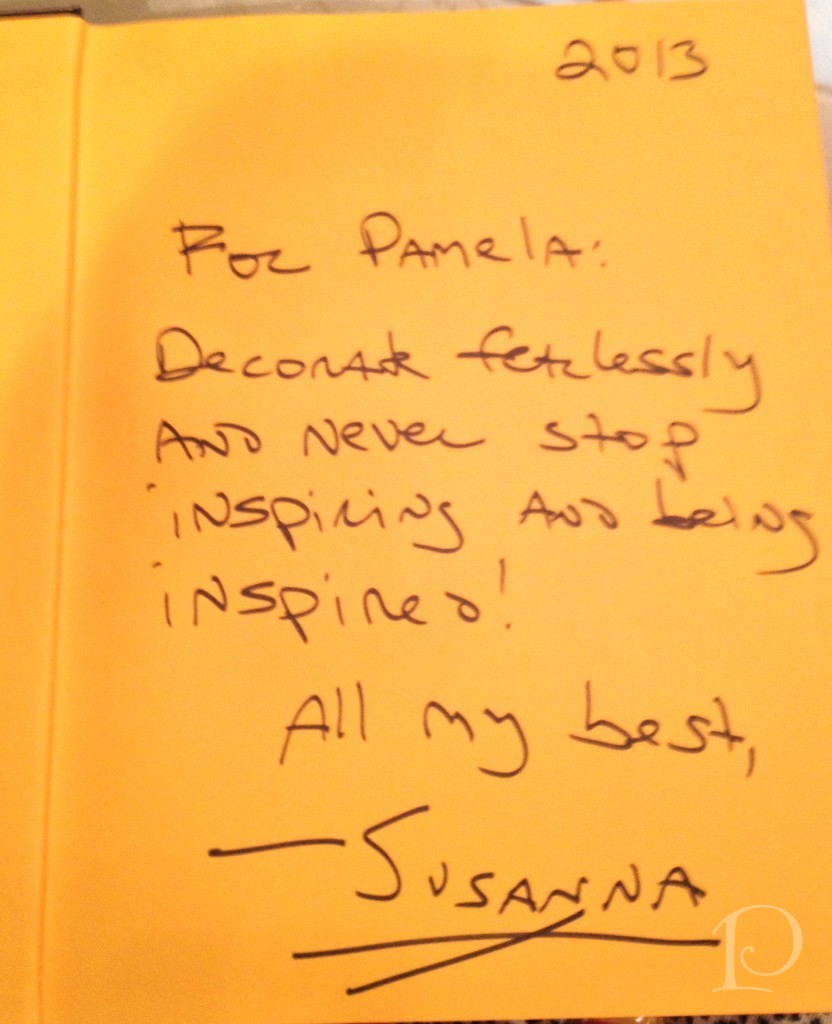 2013
For Pamela:
Decorate fearlessly
AND Never stop
iNspiring AND being
iNspired!
All my best,
—SUSANNA
P